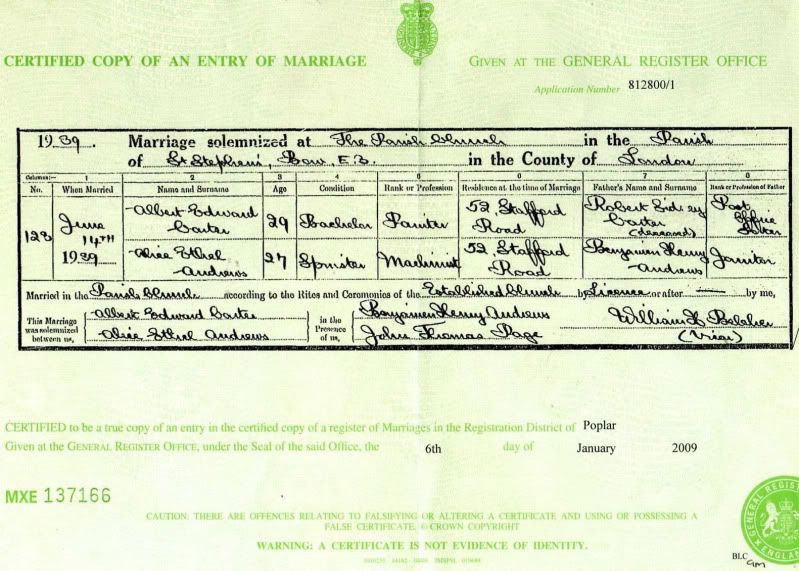 CERTIFIED COPY OF AN ENTRY OF MARRIAGE
GIVEN AT THE GENERAL REGISTER OFFICE
Application Number 812800/1
1939. Marriage solemnized at The Parish Church in the Parish
of St Stephens', Bow, E.3. in the County of London
Columns:— 1 2 3 4 5 6 7 8
No. When Married Name and Surname Age Condition Rank or Profession Residence at the time of Marriage Father's Name and Surname Rank or Profession of Father
123 June 14TH 1939
Albert Edward Carter 29 Bachelor Painter 52, Stafford Road Robert Sidney Carter (deceased) Post Office
Alice Ethel Andrews 27 Spinster Machinist 52, Stafford Road Benjamin Henry Andrews Janitor
Married in the Parish Church according to the Rites and Ceremonies of the Established Church by Licence or after — by me,
This Marriage was solemnized between us,
Albert Edward Carter
Alice Ethel Andrews
in the Presence of us,
Benjamin Henry Andrews
John Thomas Page
William
(Vicar)
CERTIFIED to be a true copy of an entry in the certified copy of a register of Marriages in the Registration District of Poplar
Given at the GENERAL REGISTER OFFICE, under the Seal of the said Office, the 6th day of January 2009
MXE 137166
CAUTION: THERE ARE OFFENCES RELATING TO FALSIFYING OR ALTERING A CERTIFICATE AND USING OR POSSESSING A
FALSE CERTIFICATE. © CROWN COPYRIGHT
WARNING: A CERTIFICATE IS NOT EVIDENCE OF IDENTITY.
GENERAL REGIS
ENGLAN
BLC